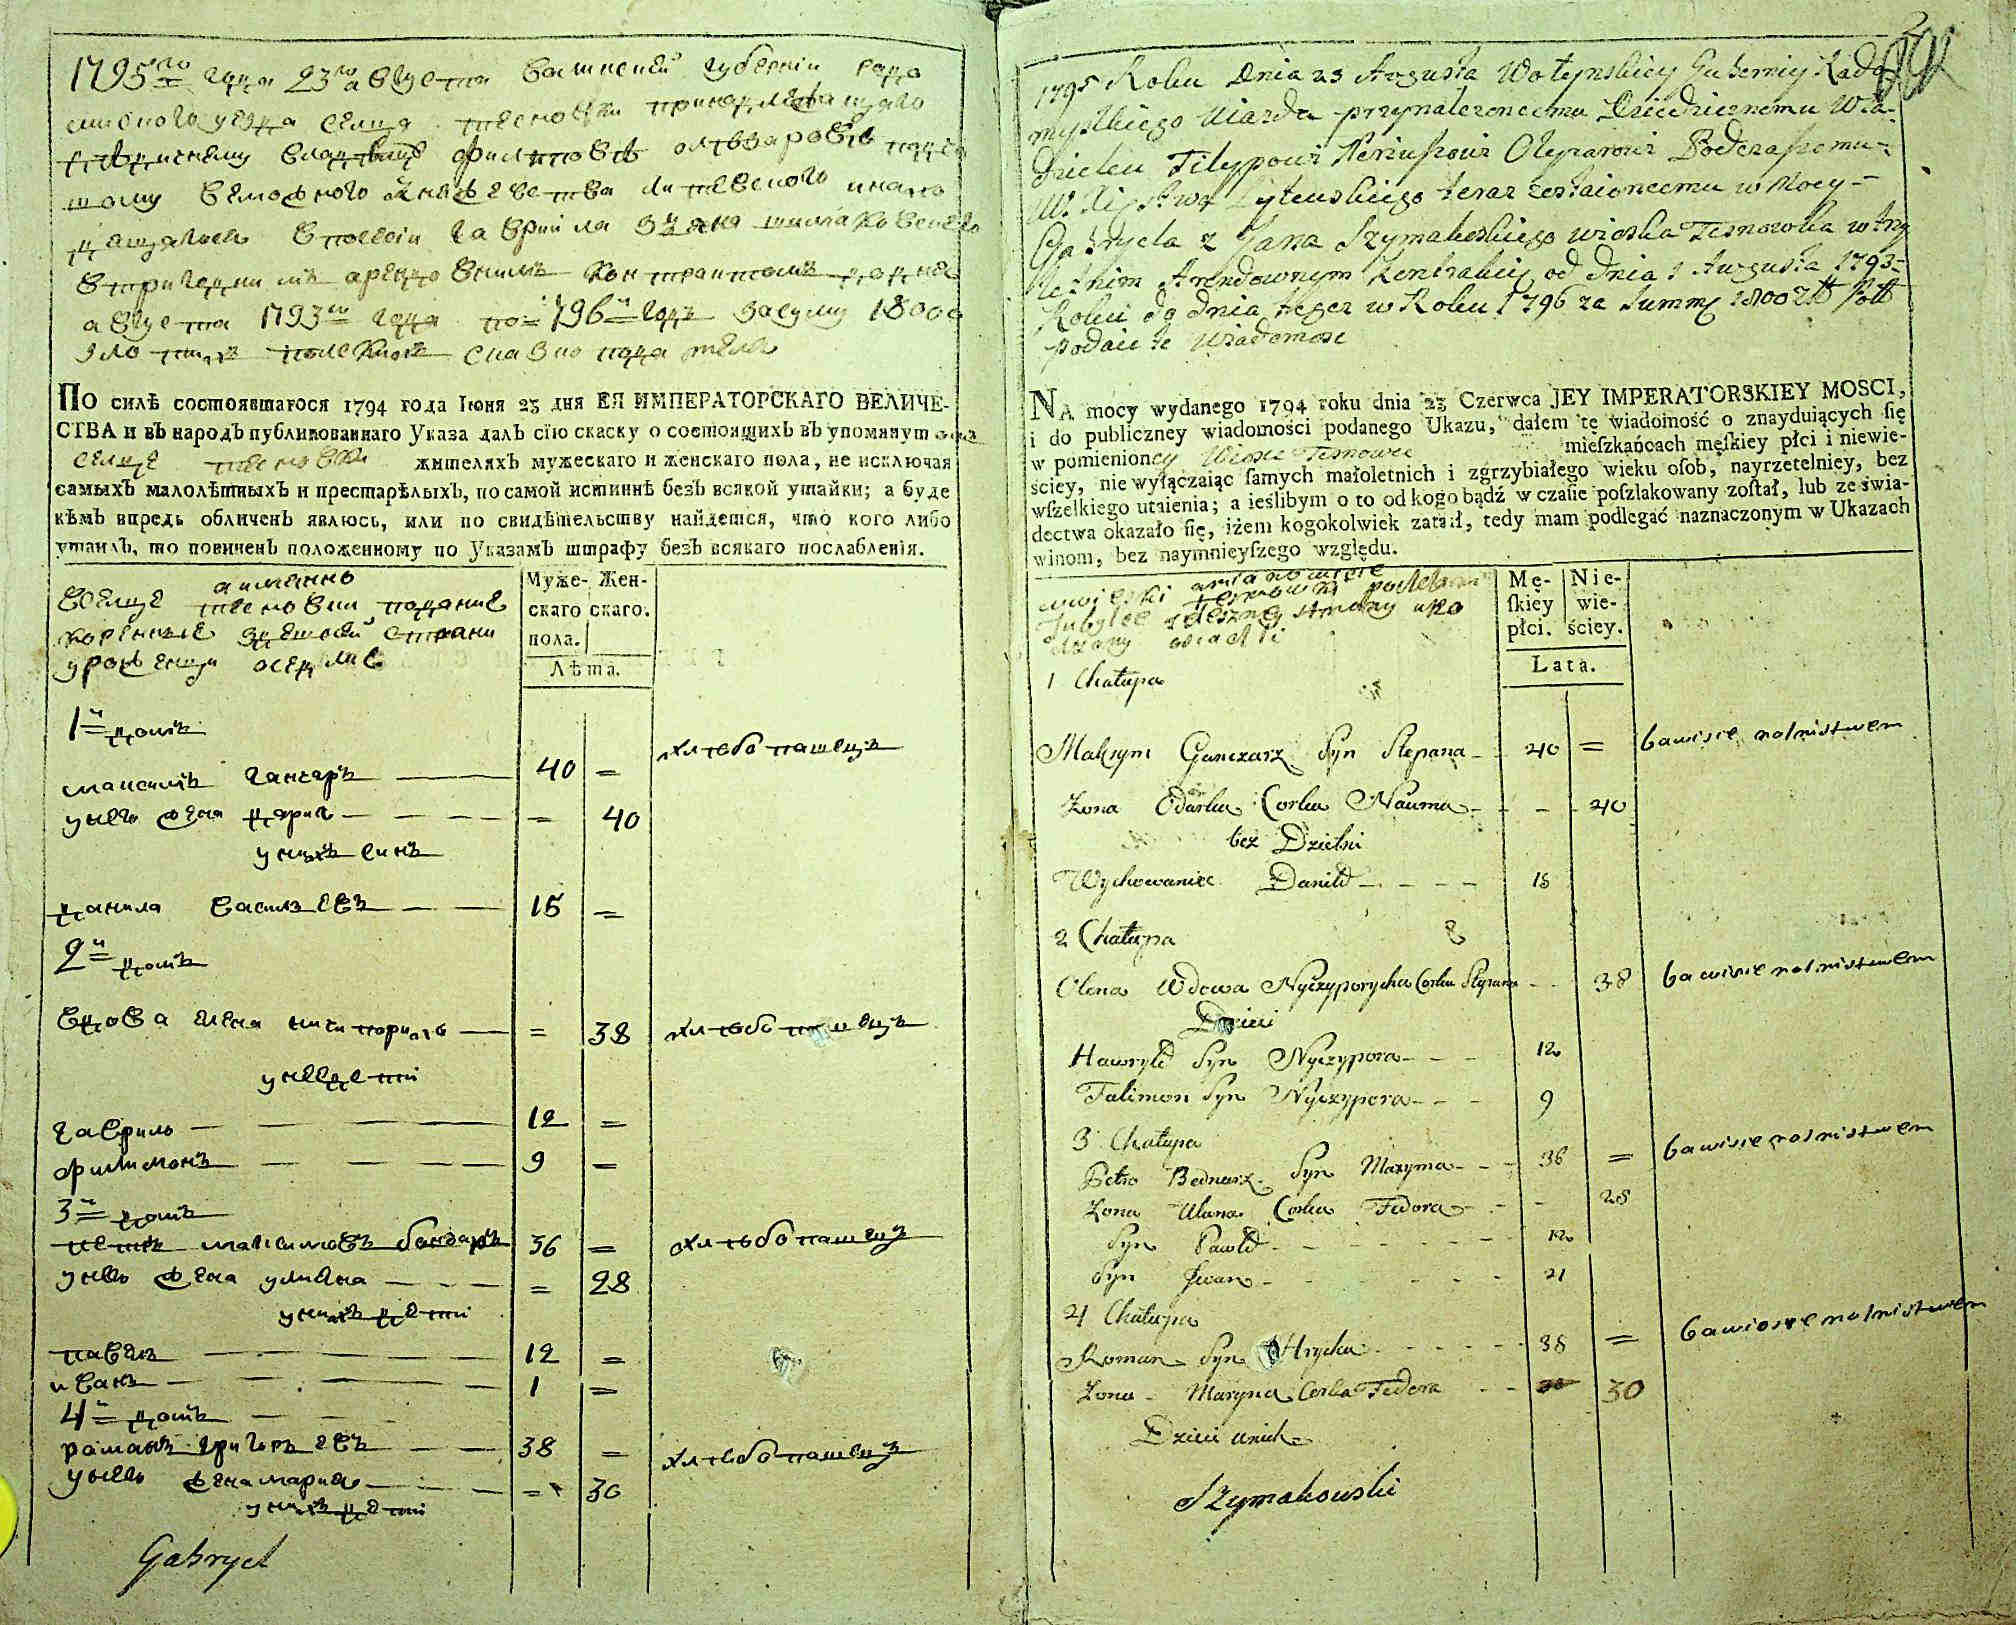 1795го года 23го августа волинской губернии радо
мисного уезда селца тесновки принадлежащого
владелице филиповѣ олизаровѣ подча
шому великого княжества литовского
в посесии гаврыила з яна шимаковского
в тригоднимъ арендовнимъ контрактомъ
августа 1793го года по 1796й годъ за суму 18000
злотихъ полскихъ
ПО силѣ состоявшагося 1794 года Іюня 23 дня ЕЯ ИМПЕРАТОРСКАГО ВЕЛИЧЕ-
СТВА и въ народъ публикованнаго Указа далъ сїю скаску о состоящихъ въ упомянутомъ
селце тесновки жителяхъ мужескаго и женскаго пола, не исключая
самыхъ малолѣтныхъ и престарѣлыхъ, по самой истиннѣ безъ всякой утайки; а буде
кѣмъ впредь обличенъ явлюсь, или по свидѣтельству найдется, что кого либо
утаилъ, то повиненъ положенному по Указамъ штрафу безъ всякаго послабленїя.
а имянно
в селце тесновки подание
коренние здешной страни
уроженци оседлие
Муже- Жен-
скаго скаго.
пола.
Лѣта.
1й домъ
максимъ ганчаръ 40 = хлебопашецъ
у него жена дария = 40
у нихъ синъ
данила василевъ 15 =
2й домъ
вдова елена ничипориха = 38 хлебопашецъ
у нее дети
гаврило 12 =
филимонъ 9 =
3й домъ
петръ максимовъ бондаръ 36 = хлебопашецъ
у него жена улияна = 28
у нихъ дети
павелъ 12 =
иванъ 1 =
4й домъ
романъ григоревъ 38 = хлебопашецъ
у него жена мария = 30
у нихъ дети
Gabryel
1795 Roku Dnia 23 Augusta Wołynskiey Gubernij Rado
myslkiego Uiazdu przynalezoncemu Dziedzicznemu Wła-
dzielcu Filypowi Neriuszowi Olyzarowi Podczaszemu
W. Xięstwa Lytewskiego teraz zostaioncemu w Mocy
Gabryela z Jana Szymakoskiego wioska Tesnowka w trzy
letnim Arendownym Kontrakcie od dnia 1 Augusta 1793
Roku do dnia tegoz w Roku 1796 za Summę 18000 złł Poll
podaie te Wiadomosc
NA mocy wydanego 1794 roku dnia 23 Czerwca JEY IMPERATORSKIEY MOSCI,
i do publiczney wiadomości podanego Ukazu, dałem tę wiadomość o znayduiących się
w pomienioncy Wiosce Tesnowce mieſzkańcach męſkiey płci i niewie-
ściey, nie wyłączaiąc ſamych małoletnich i zgrzybiałego wieku oſob, nayrzetelniey, bez
wſzelkiego utaienia; a ieślibym o to od kogo bądź w czaſie poſzlakowany zoſtał, lub ze świa-
dectwa okazało ſię, iżem kogokolwiek zataił, tedy mam podlegać naznaczonym w Ukazach
winom, bez naymnieyſzego względu.
amianowicie
w wioski Tesnowki
Mę- Nie-
ſkiey wie-
płci. ściey.
Lata.
1 Chałupa
Maksym Ganczarz Syn Stepana 40 = bawisie rolnistwem
Zona Odarka Corka Nauma - 40
bez Dzietni
Wychowaniec Daniło 15
2 Chałupa
Olena Wdowa Nyczyporycha Corka 38 bawisie rolnistwem
Dzieci
Hawryło Syn Nyczypora 12
Talimon Syn Nyczypora 9
3 Chałupa
Petro Bednarz Syn Maxyma 36 = bawisie rolnistwem
Zona Ulana Corka Fedora - 28
Syn Pawło 12
Syn Jwan
4 Chałupa
Roman Syn Hryćka 38 = bawisie rolnistwem
Zona Maryna Corka Fedora 30
Dzieci unich
Szymakowski